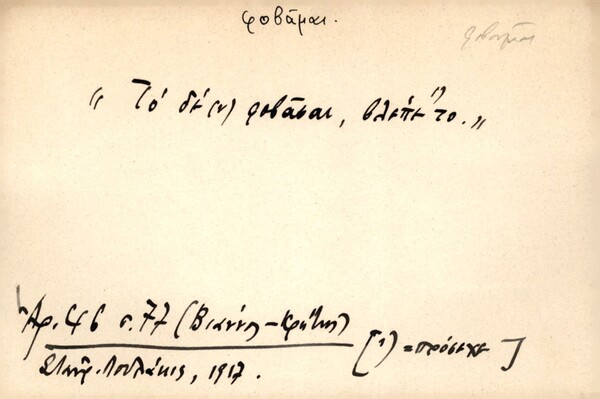 φοβᾶμαι.
φοβοῦμαι
" Τό δέ(ν) φοβᾶσαι, βλέπε ¹) το. "
Ἀρ. 46 σ. 77 (Βιάννος - Κρήτης)
Σταῦρ. 1917. [¹) = πρόσεχε]